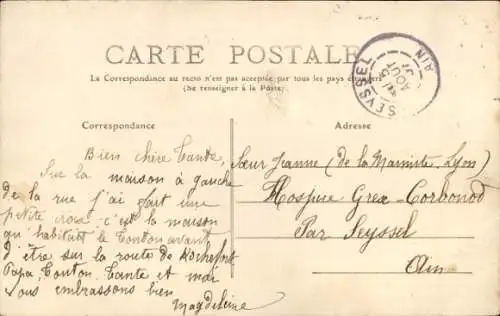 CARTE POSTALE
La Correspondance au recto n'est pas acceptée par tous les pays étrangers
(Se renseigner à la Poste)
SEYSSEL AIN
AOUT
Correspondance
Adresse
Bien chère Tante,
Sur la maison à gauche
de la rue j'ai fait une
petite croix c'est la maison
qu'habitait le Tonton avant
d'être sur la route de Rochefort
Papa, Tonton, Tante et moi
vous embrassons bien
Magdeleine
Sœur Jeanne (de la Marmite, Lyon)
Hospice Grex-Corbonod
Par Seyssel
Ain